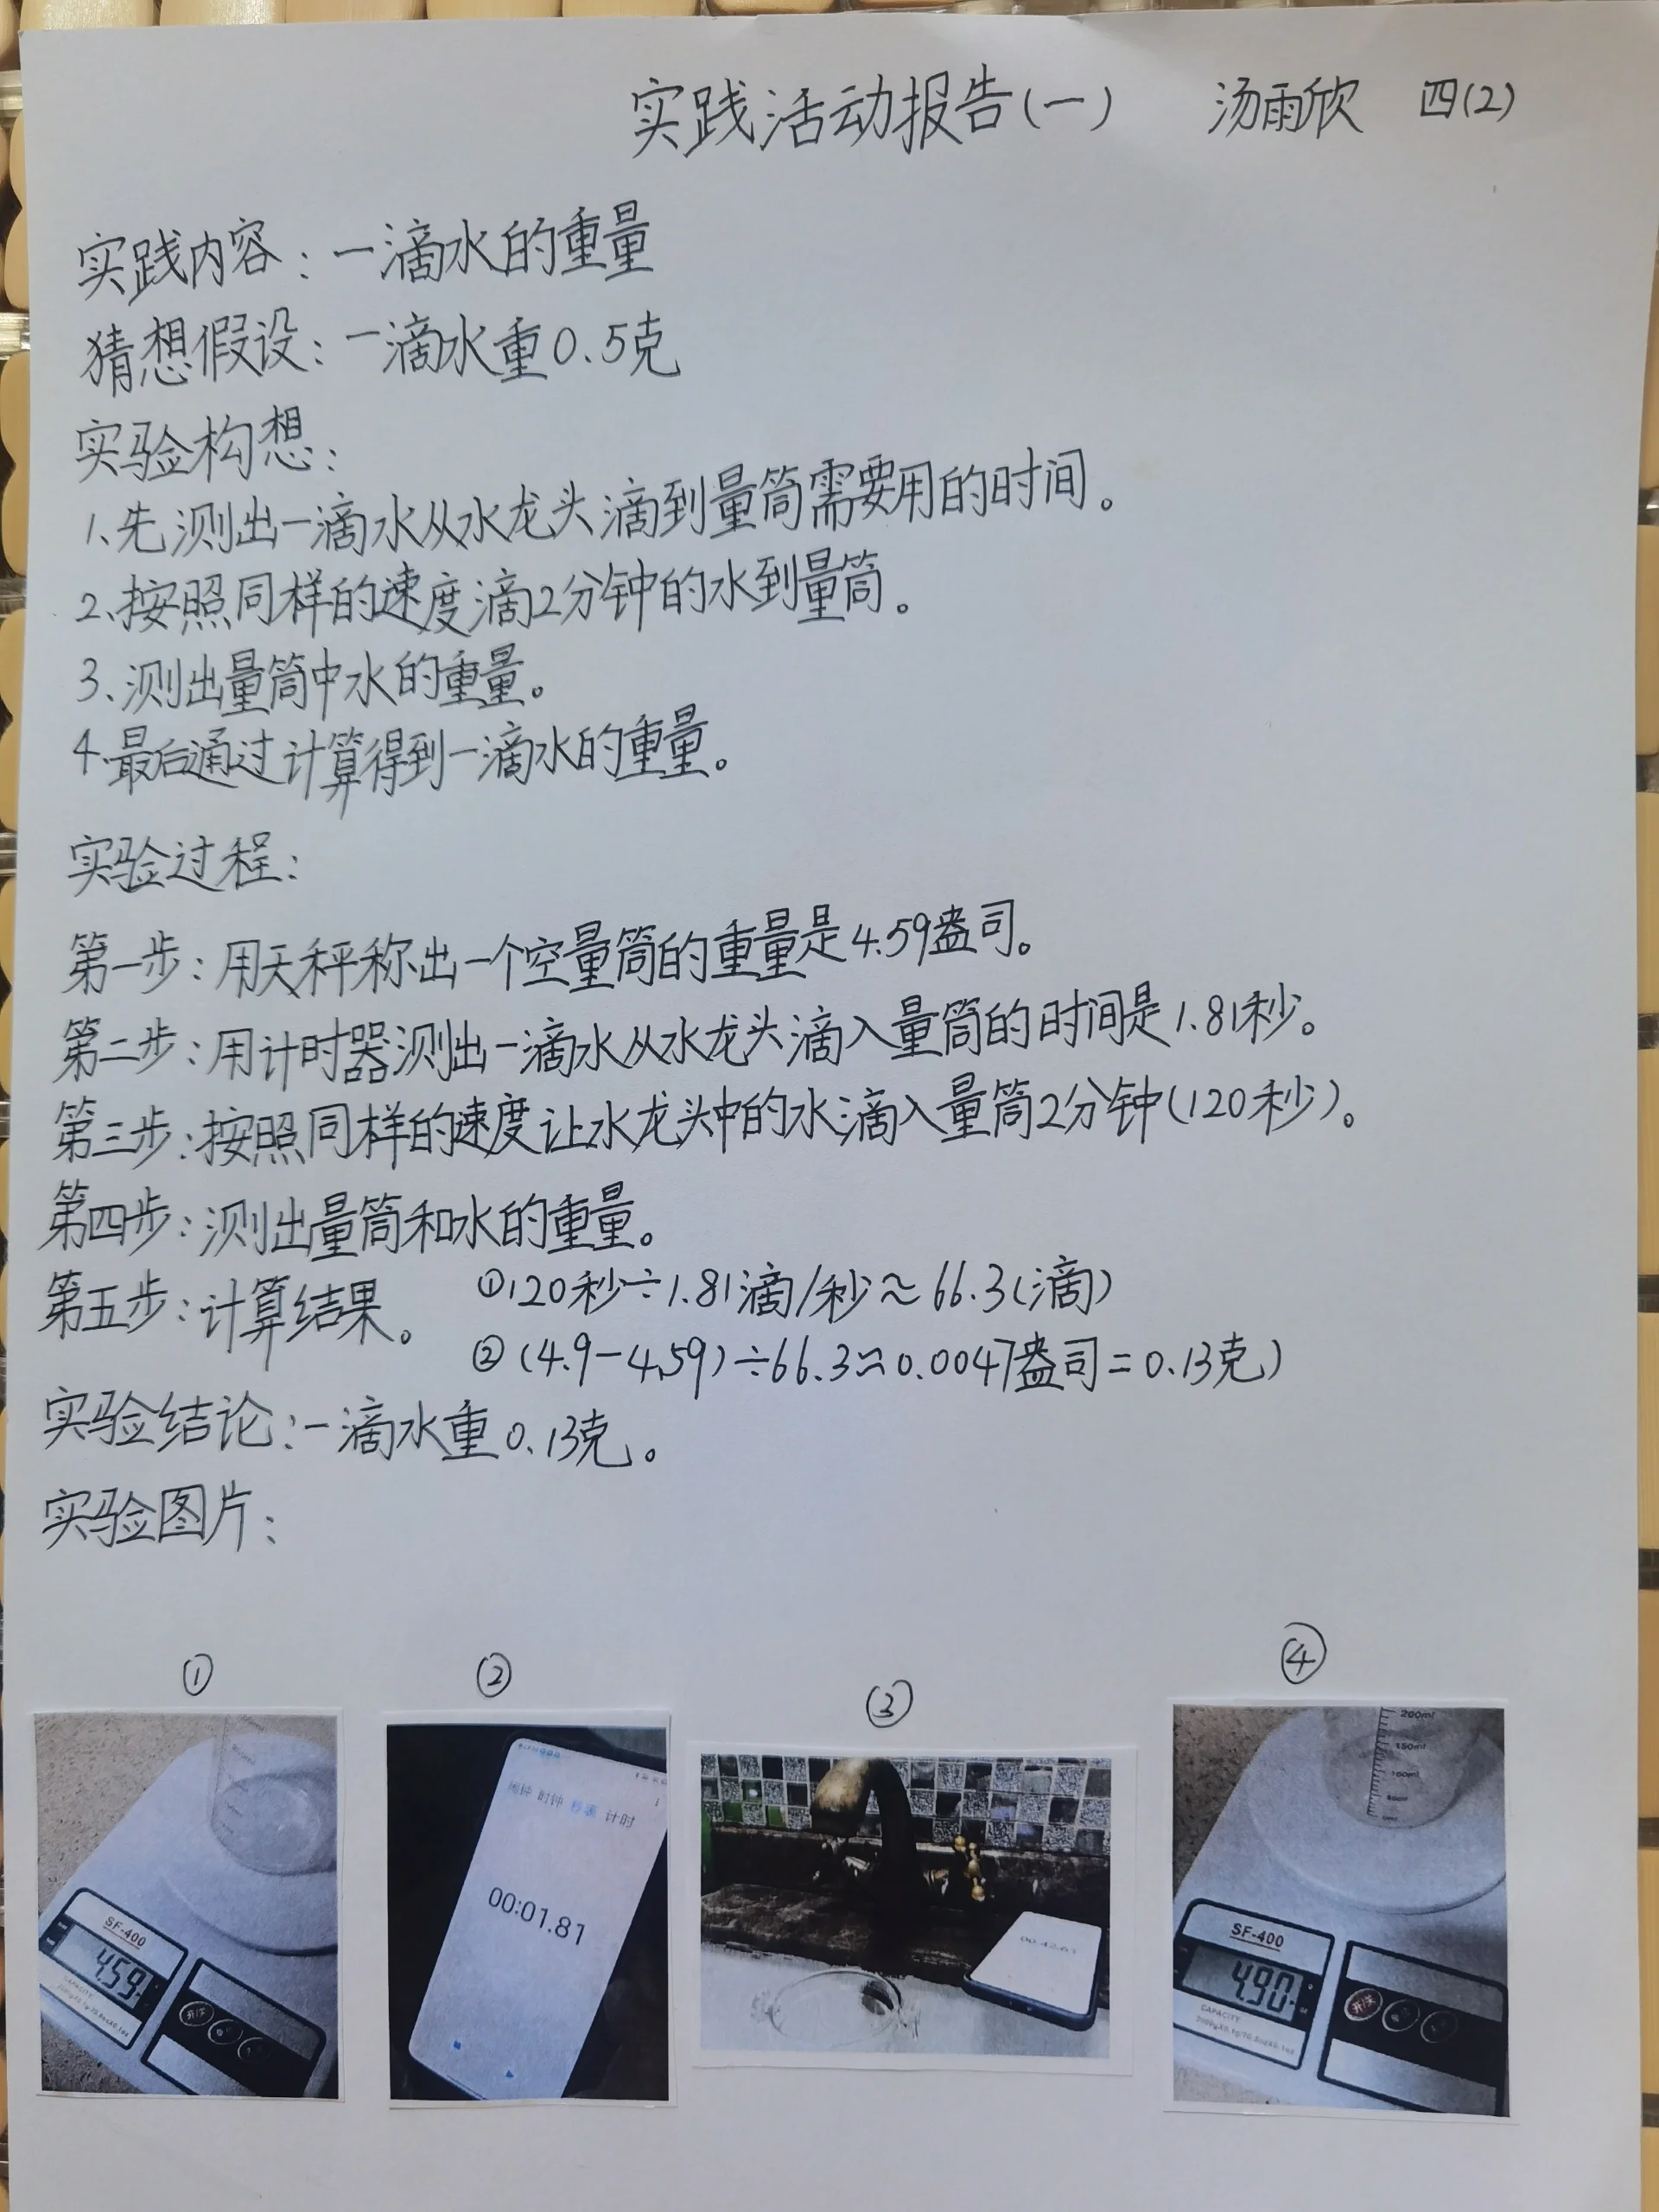 实践活动报告(一) 汤雨欣 四(2)
实践内容:一滴水的重量
猜想假设:一滴水重0.5克
实验构想:
1、先测出一滴水从水龙头滴到量筒需要用的时间。
2、按照同样的速度滴2分钟的水到量筒。
3、测出量筒中水的重量。
4、最后通过计算得到一滴水的重量。
实验过程:
第一步:用天秤称出一个空量筒的重量是4.59盎司。
第二步:用计时器测出一滴水从水龙头滴入量筒的时间是1.81秒。
第三步:按照同样的速度让水龙头中的水滴入量筒2分钟(120秒)。
第四步:测出量筒和水的重量。
第五步:计算结果。 ①120秒÷1.81滴/秒≈66.3(滴)
②(4.9-4.59)÷66.3≈0.0047盎司=0.13克)
实验结论:一滴水重0.13克。
实验图片:
① ② ③ ④
SF-400
4.59
CAPACITY
闹钟 时钟 秒表 计时
00:01.81
200ml
150ml
100ml
SF-400
4.90
CAPACITY
开/关